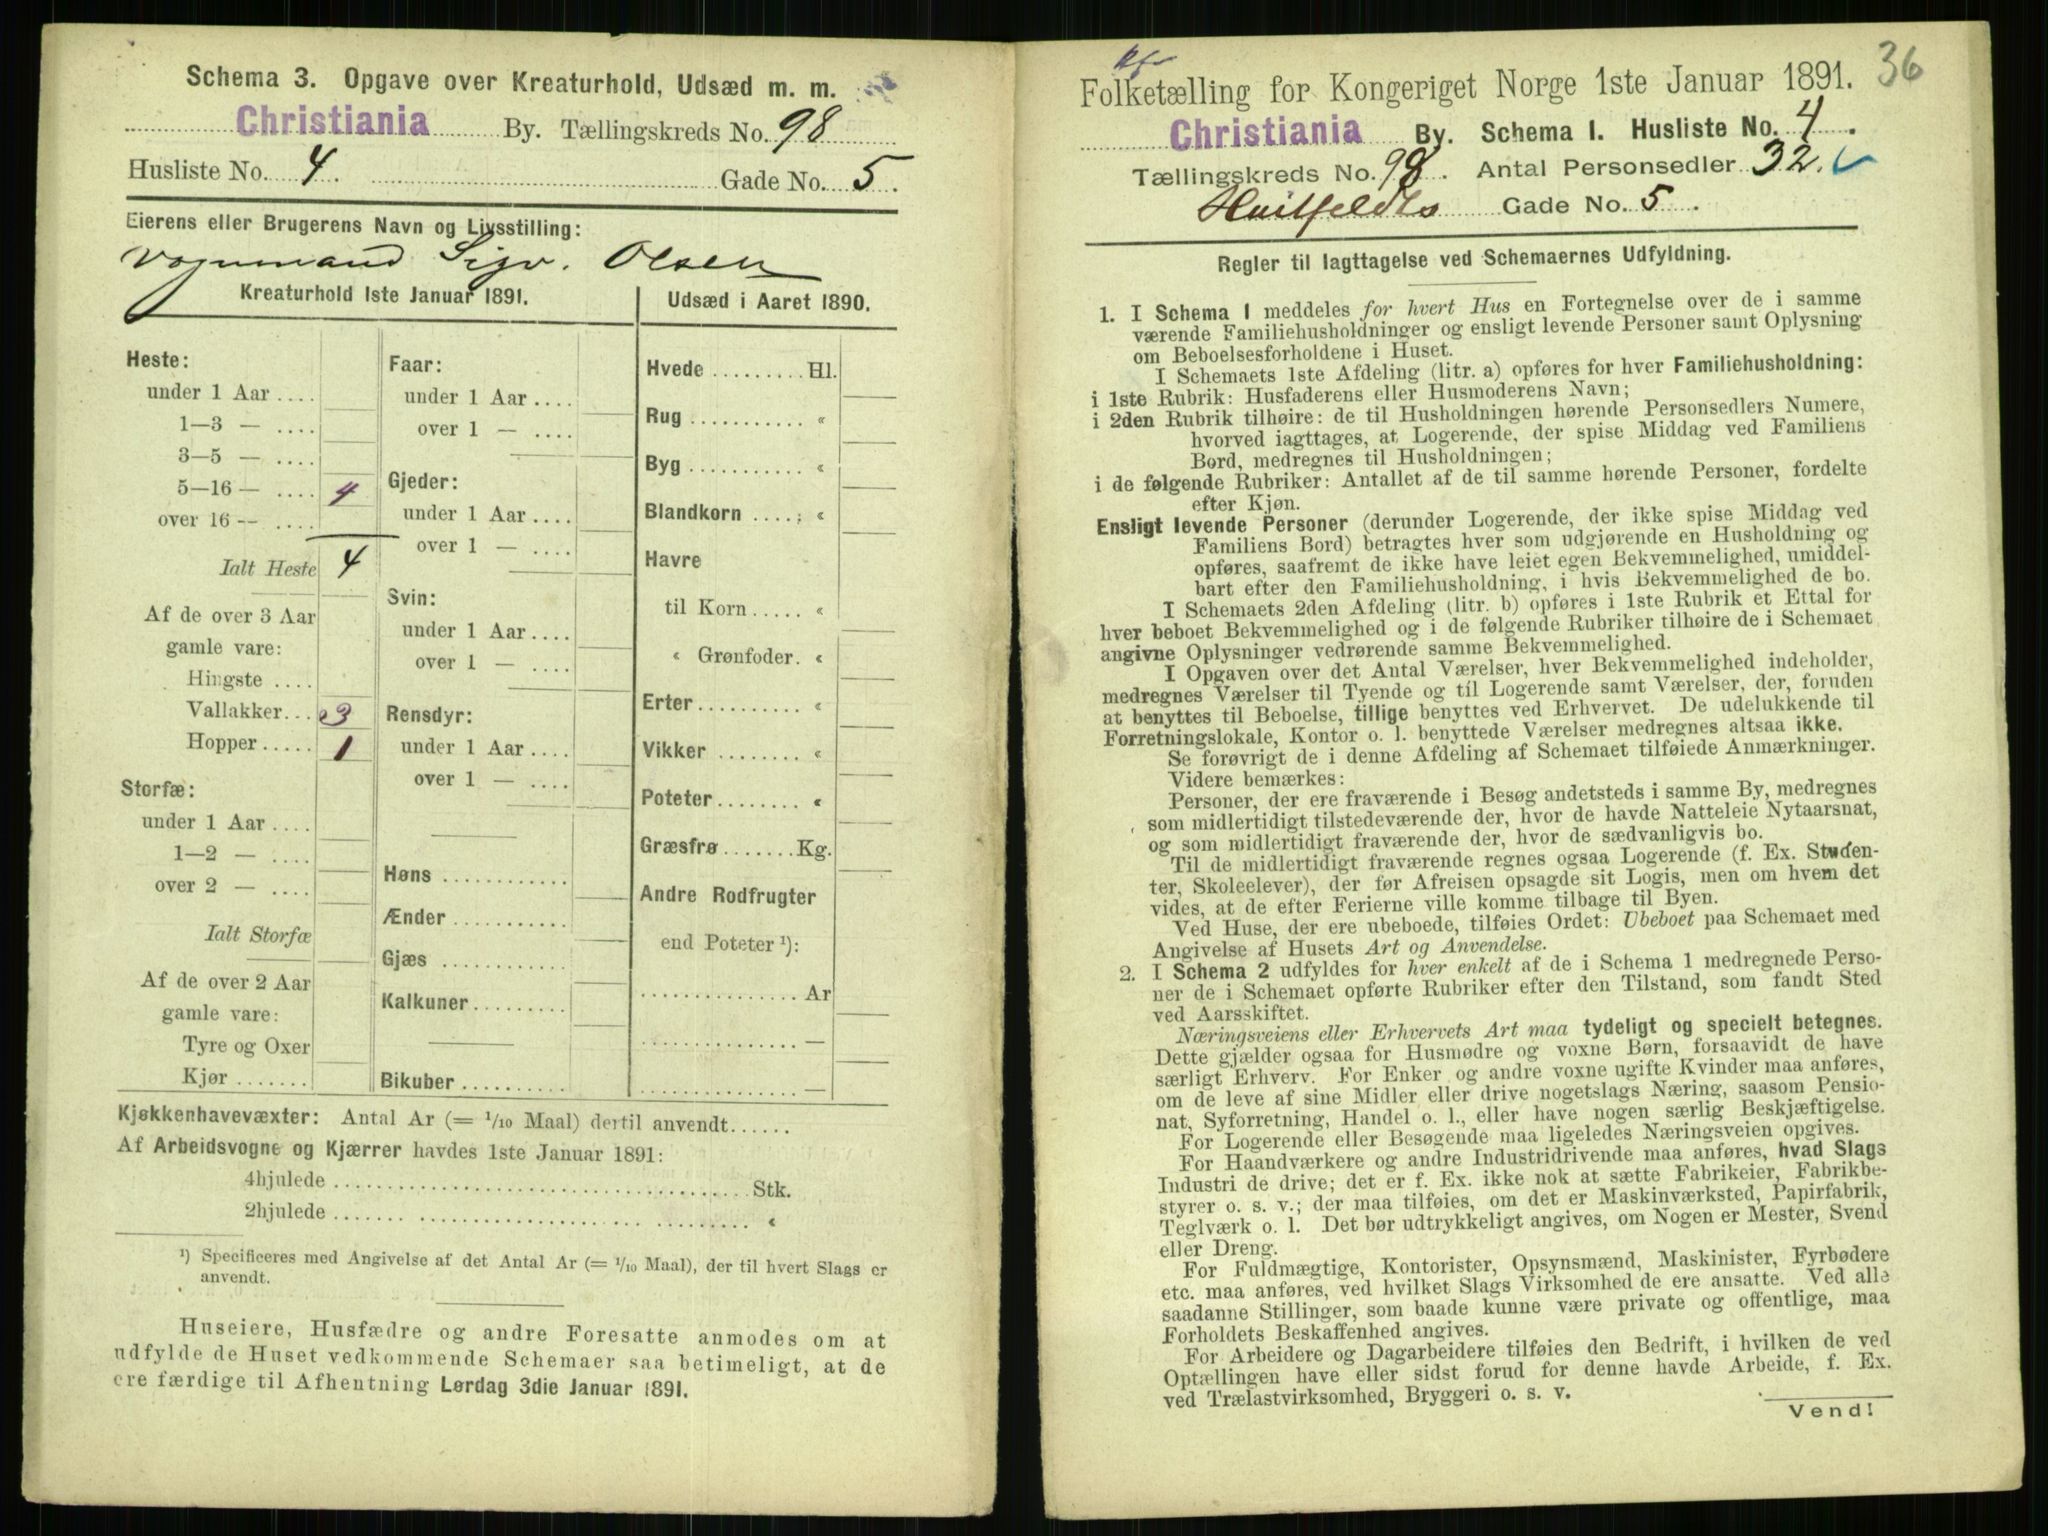 Schema 3. Opgave over Kreaturhold, Udsæd m. m.
Christiania By. Tællingskreds No. 98
Husliste No. 4. Gade No. 5.
Eierens eller Brugerens Navn og Livsstilling:
Vognmand Sigv. Olsen
Kreaturhold 1ste Januar 1891.
Heste:
under 1 Aar ....
1—3 — ....
3—5 — ....
5—16 — .... 4
over 16 — ....
Ialt Heste 4
Af de over 3 Aar
gamle vare:
Hingste ....
Vallakker... 3
Hopper..... 1
Storfæ:
under 1 Aar ....
1—2 — ....
over 2 — ....
Ialt Storfæ
Af de over 2 Aar
gamle vare:
Tyre og Oxer
Kjør .......
Faar:
under 1 Aar ....
over 1 — ....
Gjeder:
under 1 Aar ....
over 1 — ....
Svin:
under 1 Aar ....
over 1 — ....
Rensdyr:
under 1 Aar ....
over 1 — ....
Høns ............
Ænder ...........
Gjæs ............
Kalkuner.........
Bikuber ..........
Udsæd i Aaret 1890.
Hvede ......... Hl.
Rug ........... «
Byg ........... «
Blandkorn ..... «
Havre
til Korn ..... «
« Grønfoder. «
Erter .......... «
Vikker ........ «
Poteter ........ «
Græsfrø ....... Kg.
Andre Rodfrugter
end Poteter ¹):
............... Ar
............... —
............... —
Kjøkkenhavevæxter: Antal Ar (= 1/10 Maal) dertil anvendt......
Af Arbeidsvogne og Kjærrer havdes 1ste Januar 1891:
4hjulede ........................................ Stk.
2hjulede ........................................ «
¹) Specificeres med Angivelse af det Antal Ar (= 1/10 Maal), der til hvert Slags er
anvendt.
Huseiere, Husfædre og andre Foresatte anmodes om at
udfylde de Huset vedkommende Schemaer saa betimeligt, at de
ere færdige til Afhentning Lørdag 3die Januar 1891.
36
Folketælling for Kongeriget Norge 1ste Januar 1891.
Christiania By. Schema 1. Husliste No. 4.
Tællingskreds No. 98. Antal Personsedler 32.
Huitfeldts Gade No. 5.
Regler til Iagttagelse ved Schemaernes Udfyldning.
1. I Schema 1 meddeles for hvert Hus en Fortegnelse over de i samme
værende Familiehusholdninger og ensligt levende Personer samt Oplysning
om Beboelsesforholdene i Huset.
I Schemaets 1ste Afdeling (litr. a) opføres for hver Familiehusholdning:
i 1ste Rubrik: Husfaderens eller Husmoderens Navn;
i 2den Rubrik tilhøire: de til Husholdningen hørende Personsedlers Numere,
hvorved iagttages, at Logerende, der spise Middag ved Familiens
Bord, medregnes til Husholdningen;
i de følgende Rubriker: Antallet af de til samme hørende Personer, fordelte
efter Kjøn.
Ensligt levende Personer (derunder Logerende, der ikke spise Middag ved
Familiens Bord) betragtes hver som udgjørende en Husholdning og
opføres, saafremt de ikke have leiet egen Bekvemmelighed, umiddel-
bart efter den Familiehusholdning, i hvis Bekvemmelighed de bo.
I Schemaets 2den Afdeling (litr. b) opføres i 1ste Rubrik et Ettal for
hver beboet Bekvemmelighed og i de følgende Rubriker tilhøire de i Schemaet
angivne Oplysninger vedrørende samme Bekvemmelighed.
I Opgaven over det Antal Værelser, hver Bekvemmelighed indeholder,
medregnes Værelser til Tyende og til Logerende samt Værelser, der, foruden
at benyttes til Beboelse, tillige benyttes ved Erhvervet. De udelukkende til
Forretningslokale, Kontor o. l. benyttede Værelser medregnes altsaa ikke.
Se forøvrigt de i denne Afdeling af Schemaet tilføiede Anmærkninger.
Videre bemærkes:
Personer, der ere fraværende i Besøg andetsteds i samme By, medregnes
som midlertidigt tilstedeværende der, hvor de havde Natteleie Nytaarsnat,
og som midlertidigt fraværende der, hvor de sædvanligvis bo.
Til de midlertidigt fraværende regnes ogsaa Logerende (f. Ex. Studen-
ter, Skoleelever), der før Afreisen opsagde sit Logis, men om hvem det
vides, at de efter Ferierne ville komme tilbage til Byen.
Ved Huse, der ere ubeboede, tilføies Ordet: Ubeboet paa Schemaet med
Angivelse af Husets Art og Anvendelse.
2. I Schema 2 udfyldes for hver enkelt af de i Schema 1 medregnede Perso-
ner de i Schemaet opførte Rubriker efter den Tilstand, som fandt Sted
ved Aarsskiftet.
Næringsveiens eller Erhvervets Art maa tydeligt og specielt betegnes.
Dette gjælder ogsaa for Husmødre og voxne Børn, forsaavidt de have
særligt Erhverv. For Enker og andre voxne ugifte Kvinder maa anføres,
om de leve af sine Midler eller drive nogetslags Næring, saasom Pensio-
nat, Syforretning, Handel o. l., eller have nogen særlig Beskjæftigelse.
For Logerende eller Besøgende maa ligeledes Næringsveien opgives.
For Haandværkere og andre Industridrivende maa anføres, hvad Slags
Industri de drive; det er f. Ex. ikke nok at sætte Fabrikeier, Fabrikbe-
styrer o. s. v.; der maa tilføies, om det er Maskinværksted, Papirfabrik,
Teglværk o. l. Det bør udtrykkeligt angives, om Nogen er Mester, Svend
eller Dreng.
For Fuldmægtige, Kontorister, Opsynsmænd, Maskinister, Fyrbødere
etc. maa anføres, ved hvilket Slags Virksomhed de ere ansatte. Ved alle
saadanne Stillinger, som baade kunne være private og offentlige, maa
Forholdets Beskaffenhed angives.
For Arbeidere og Dagarbeidere tilføies den Bedrift, i hvilken de ved
Optællingen have eller sidst forud for denne havde Arbeide, f. Ex.
ved Trælastvirksomhed, Bryggeri o. s. v.
Vend!